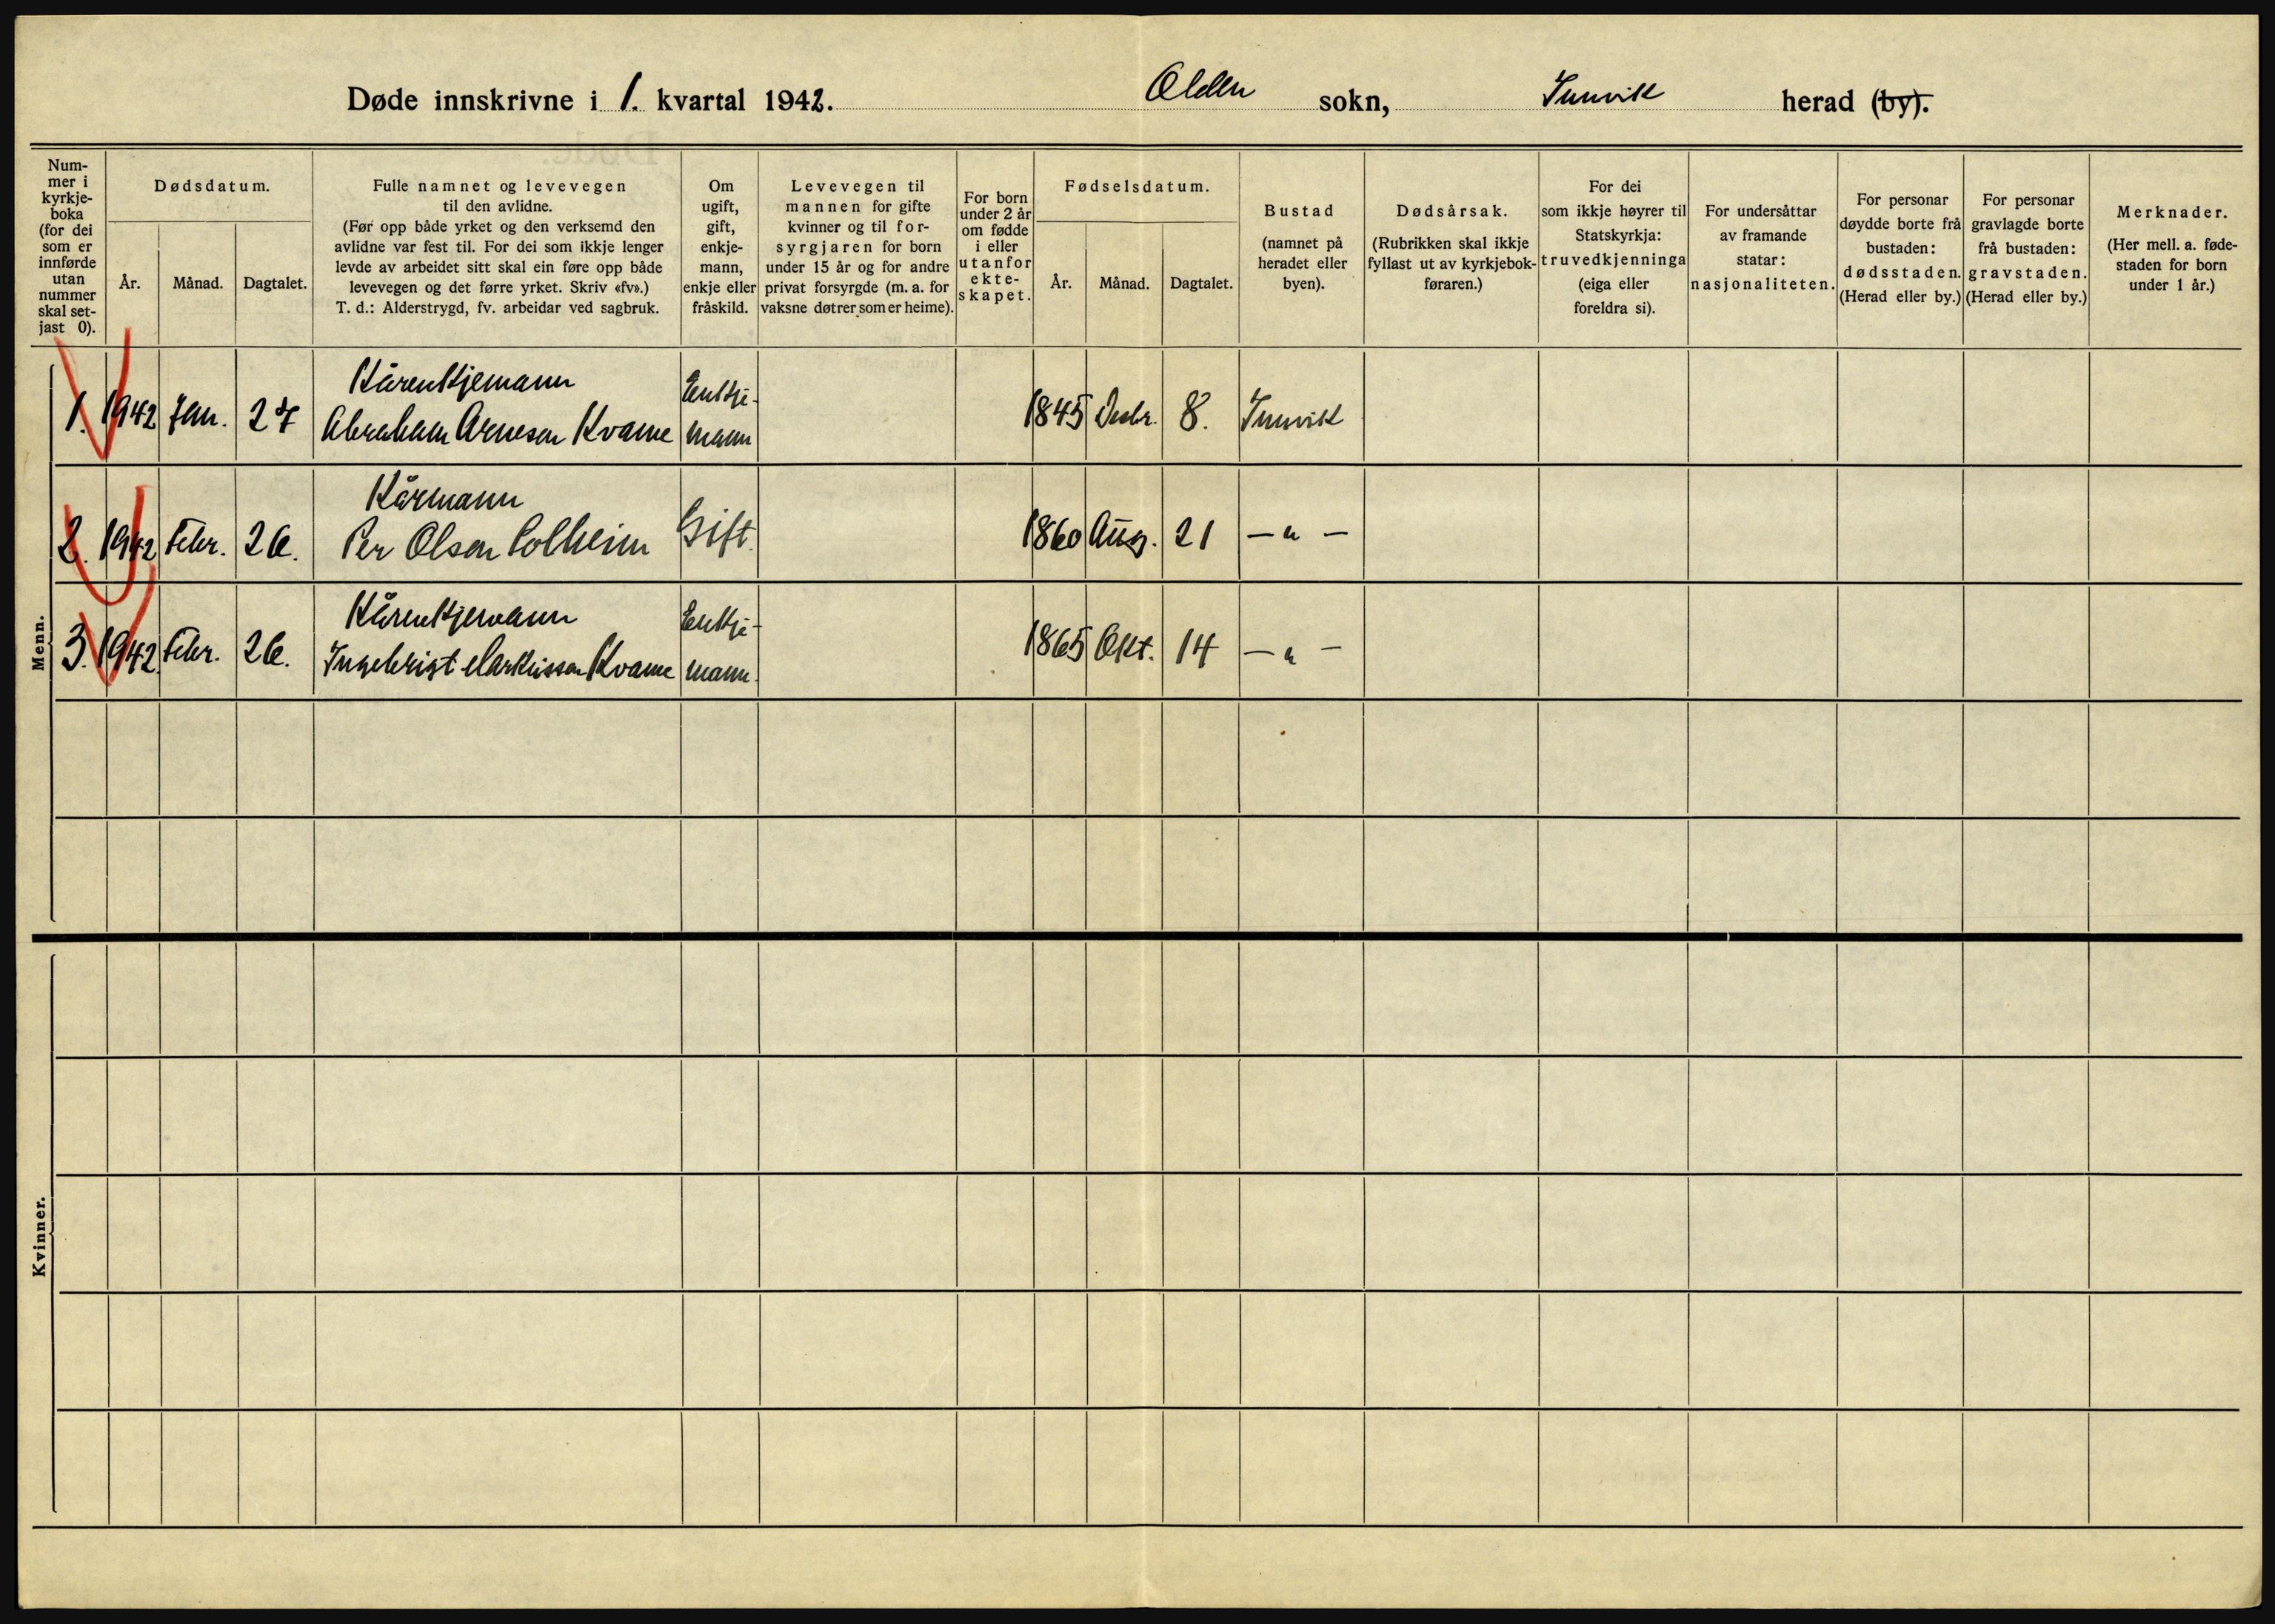 Døde innskrivne i 1. kvartal 1942. Olden sokn, Innvik herad (by).
Num-
mer i
kyrkje-
boka
(for dei
som er
innførde
utan
nummer
skal set-
jast 0).
Dødsdatum.
År. Månad. Dagtalet.
Fulle namnet og levevegen
til den avlidne.
(Før opp både yrket og den verksemd den
avlidne var fest til. For dei som ikkje lenger
levde av arbeidet sitt skal ein føre opp både
levevegen og det førre yrket. Skriv «fv».)
T. d.: Alderstrygd, fv. arbeidar ved sagbruk.
Om
ugift,
gift,
enkje-
mann,
enkje eller
fråskild.
Levevegen til
mannen for gifte
kvinner og til for-
syrgjaren for born
under 15 år og for andre
privat forsyrgde (m. a. for
vaksne døtrer som er heime).
For born
under 2 år
om fødde
i eller
utanfor
ekte-
skapet.
Fødselsdatum.
År. Månad. Dagtalet.
Bustad
(namnet på
heradet eller
byen).
Dødsårsak.
(Rubrikken skal ikkje
fyllast ut av kyrkjebok-
føraren.)
For dei
som ikkje høyrer til
Statskyrkja:
truvedkjenninga
(eiga eller
foreldra si).
For undersåttar
av framande
statar:
nasjonaliteten.
For personar
døydde borte frå
bustaden:
dødsstaden.
(Herad eller by.)
For personar
gravlagde borte
frå bustaden:
gravstaden.
(Herad eller by.)
Merknader.
(Her mell. a. føde-
staden for born
under 1 år.)
Menn.
Kårenkjemann Enkje-
1. 1942 Jan. 27 Abraham Arnesen Kvame mann 1845 Desbr. 8. Innvik
Kårmann
2. 1942 Febr. 26. Per Olsen Solheim Gift. 1860 Aug. 21 — " —
Kårenkjemann Enkje-
3. 1942. Febr. 26. Ingebrigt Markusson Kvame mann. 1865 Okt. 14 — " —
Kvinner.